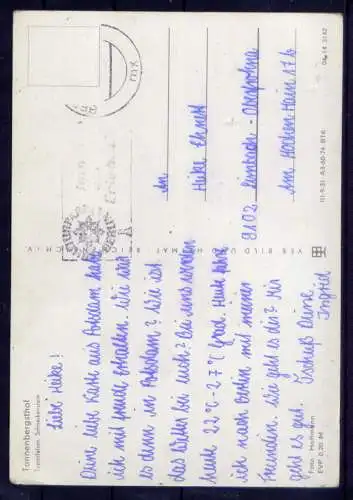 Tannenbergsthal
Foto: Hoffmann
EVP 0,20 M
Liebe Heike!
Deine liebe Karte aus Potsdam habe
ich mit Freude erhalten. Wie war
es denn in Potsdam? Wie ist
das Wetter bei euch? Bei uns werden
heute 22°C-27°C grad. Heute fahre
ich nach Berlin mit meinen
Freunden. Wie geht es dir? Mir
geht es gut. Tschüß Deine
Ingrid
VEB BILD UND HEIMAT REICHENBACH I. V.
An
Heike Ehnert
9102 Limbach-Oberfrohna
Am Hohen Hain 17b
III-9-31 A3-60-74 B16
06 14 3182